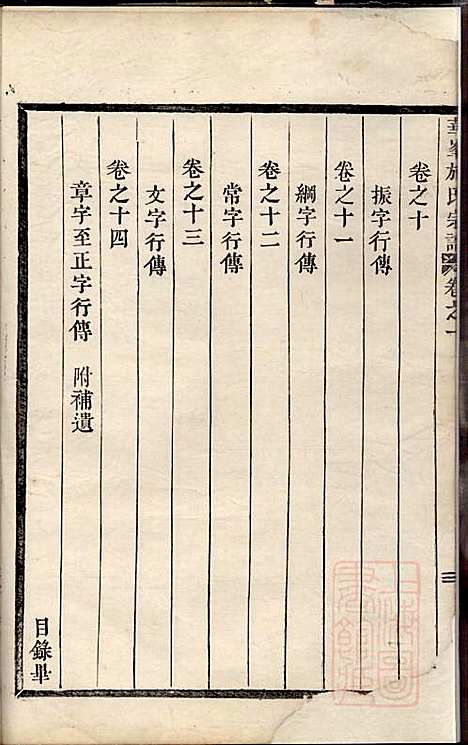 華峯施氏宗譜 卷之一
卷之十
振字行傳
卷之十一
綱字行傳
卷之十二
常字行傳
卷之十三
文字行傳
卷之十四
章字至正字行傳 附補遺
目錄畢